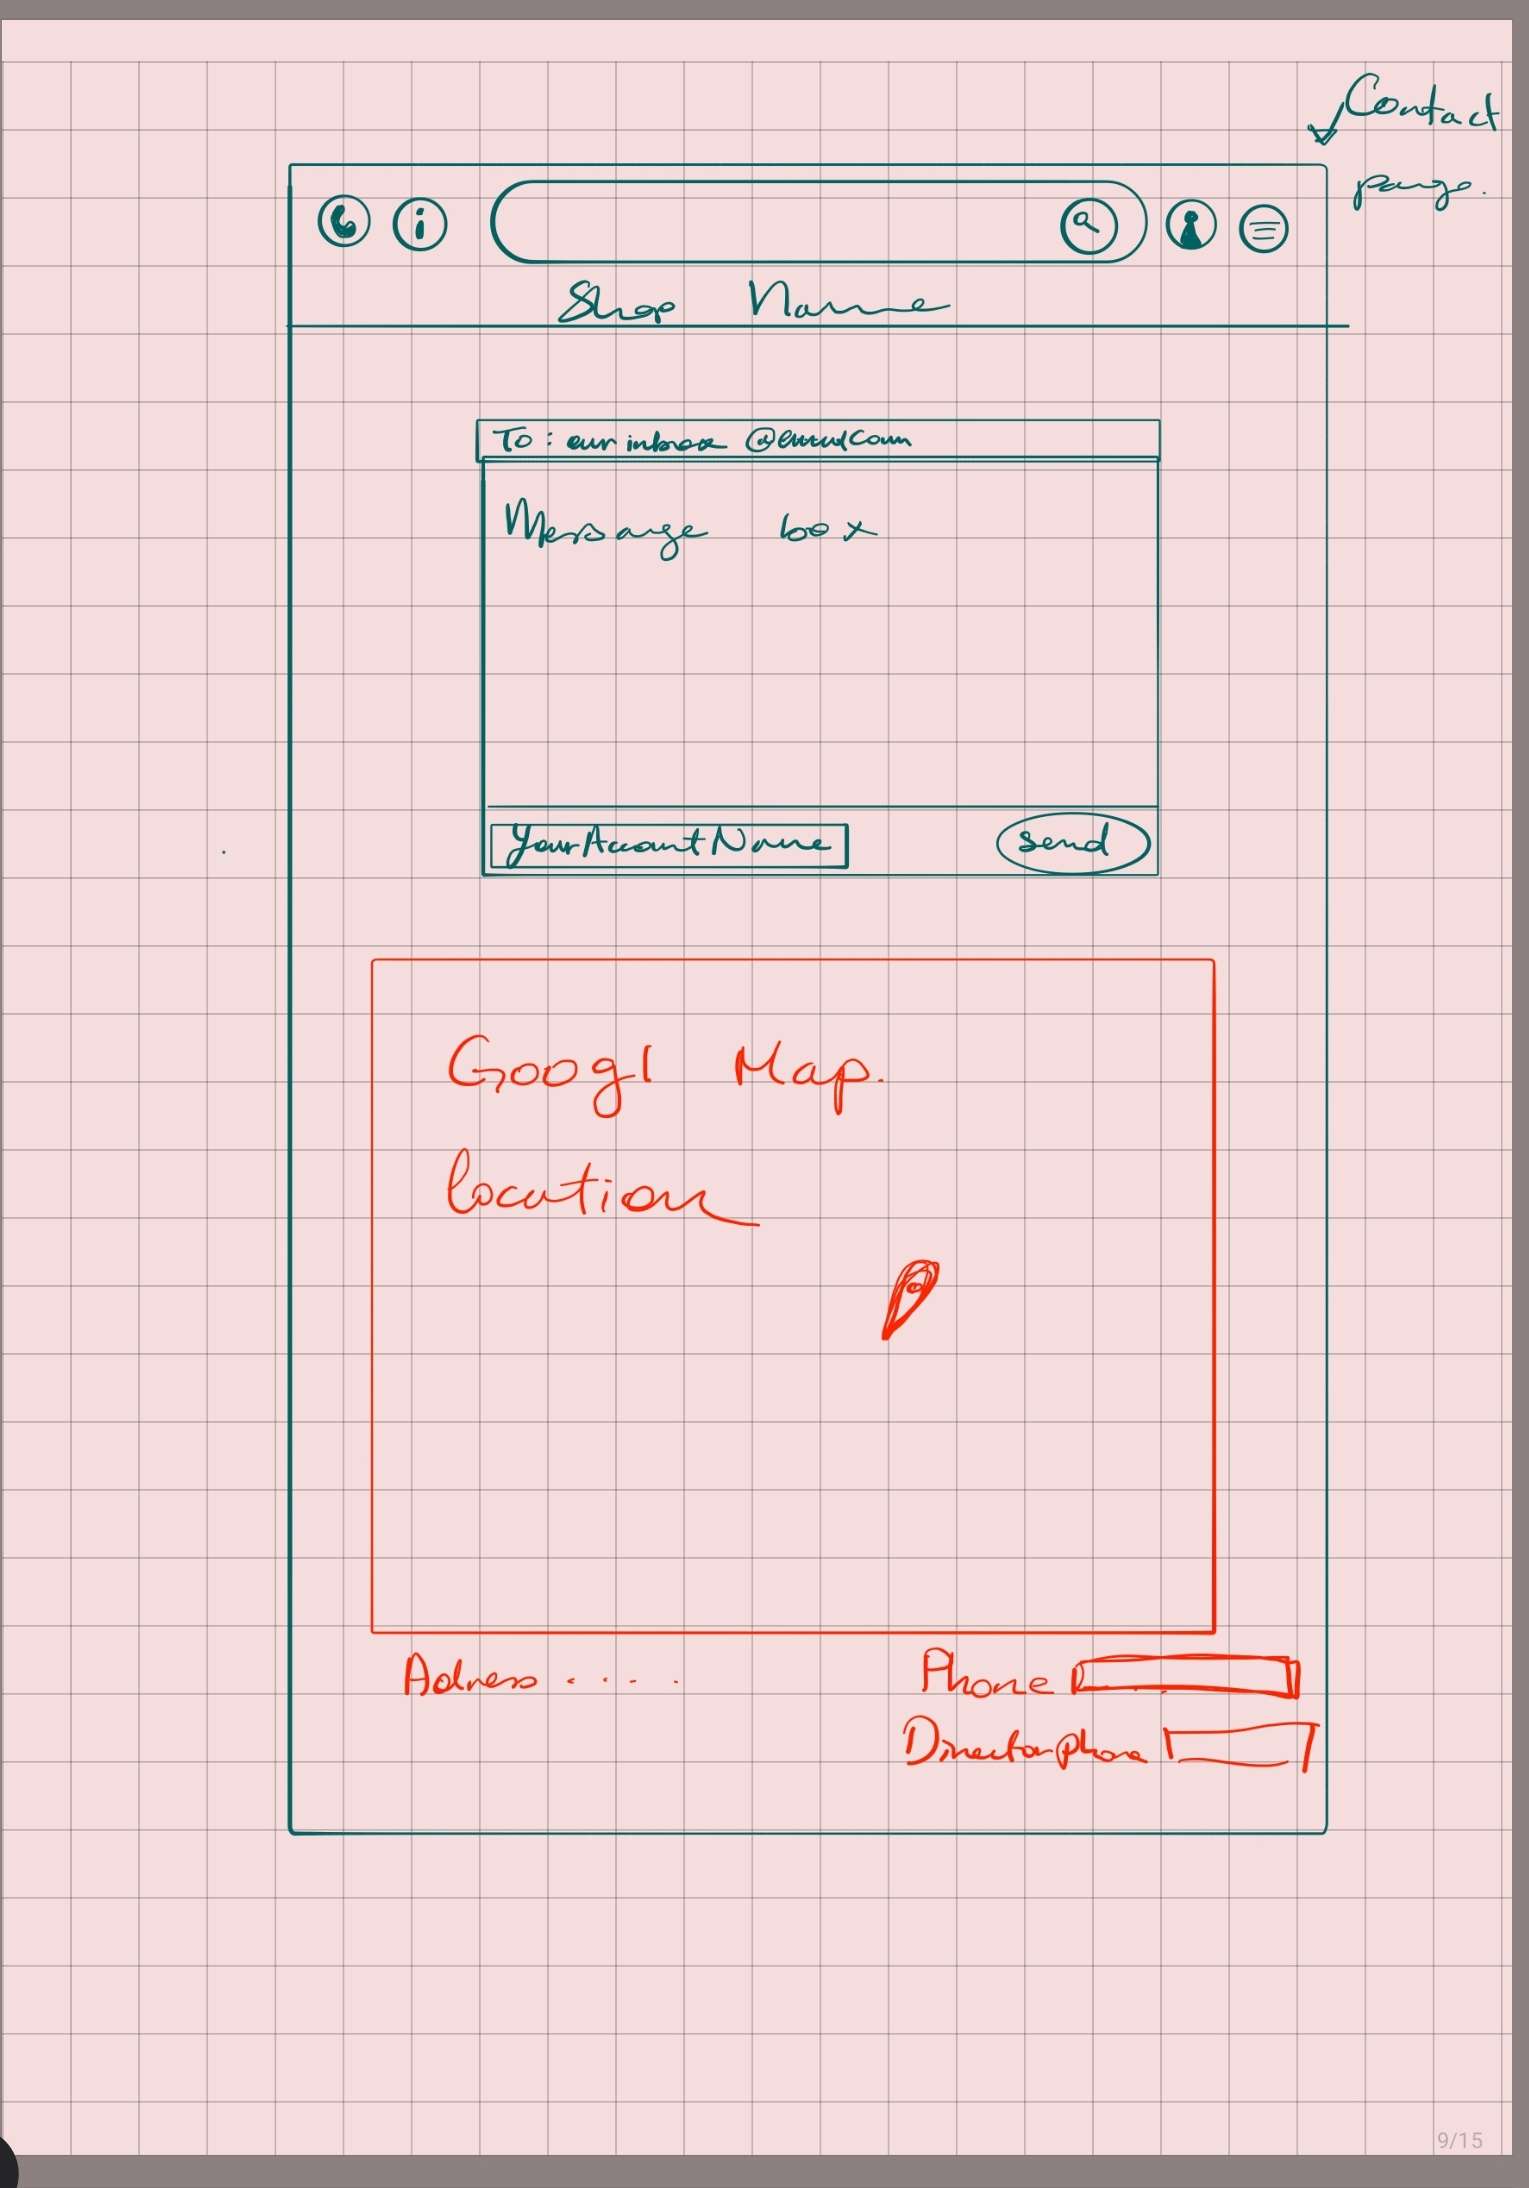 Contact
page.
i
Shop Name
To: our inbox @email.com
Message box
YourAccountName
Send
Googl Map.
location
Adress ....
Phone
Director phone
9/15